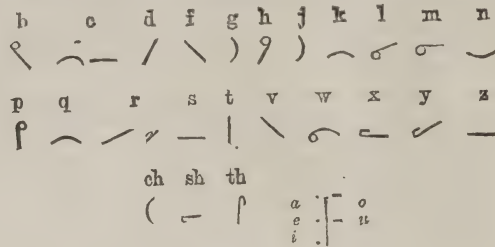 b c d f g h j k l m n
p q r s t v w x y z
ch sh th
a o
e u
i